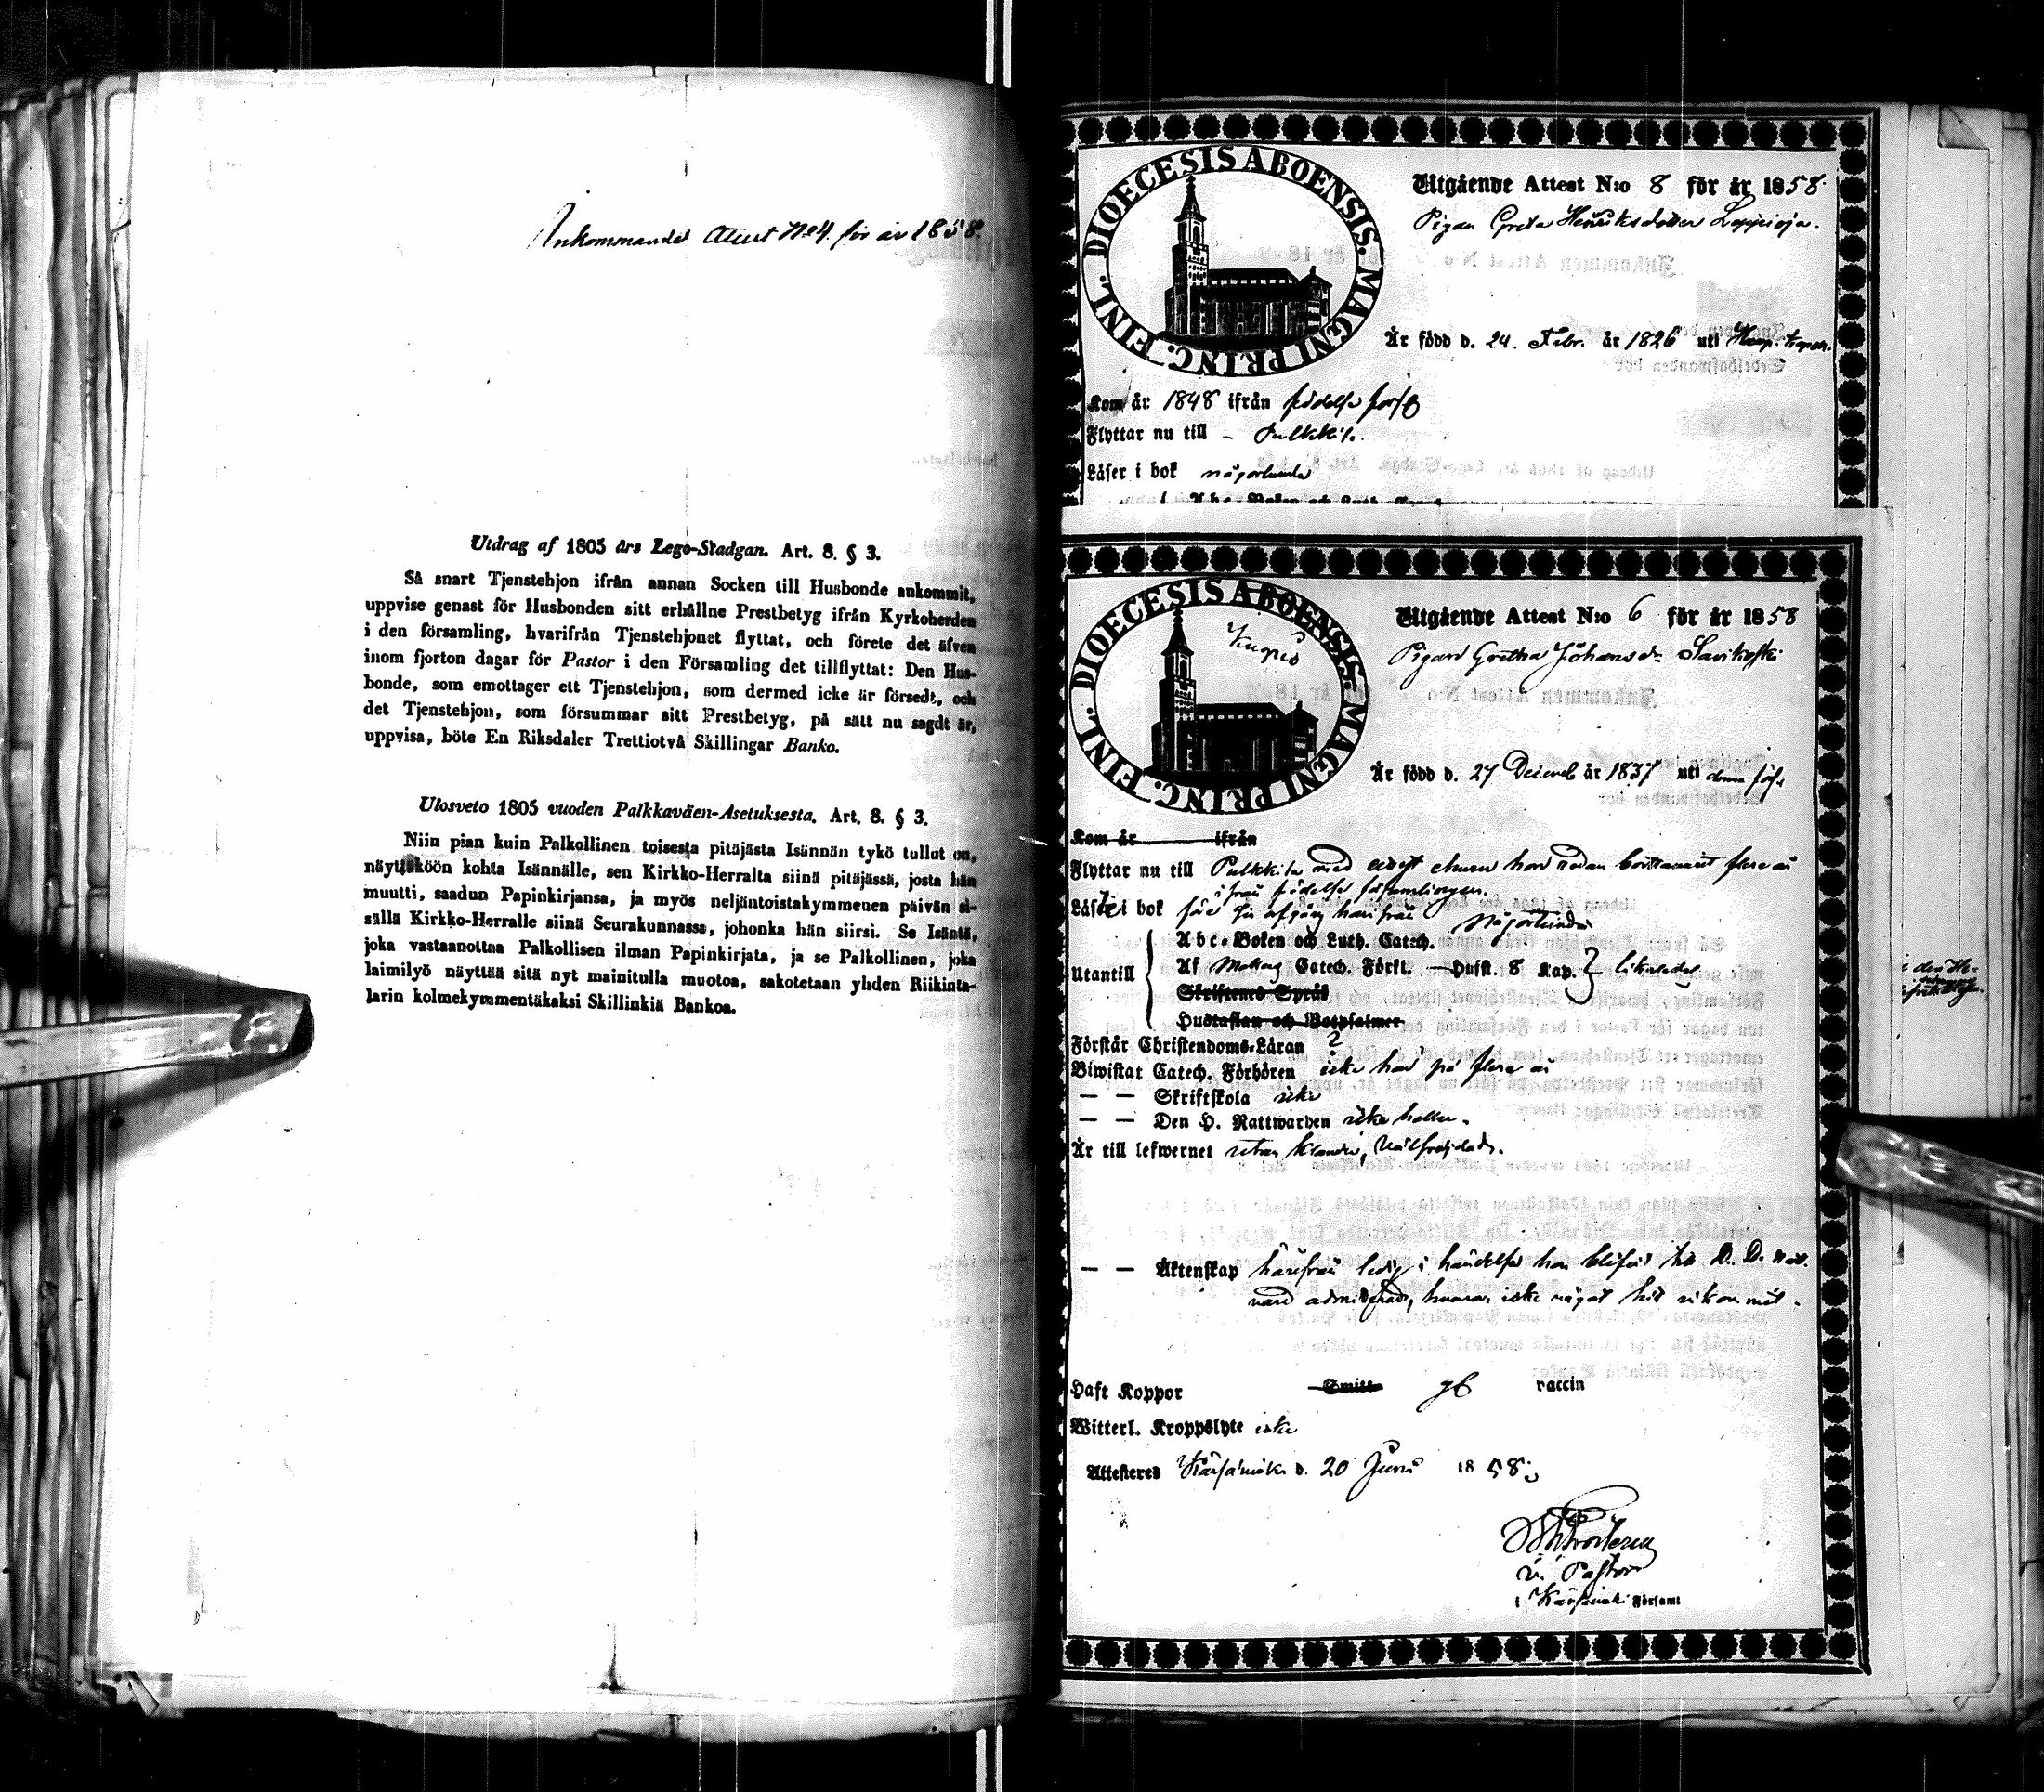 Ankommande Attest No 4. för år 1858.
Utdrag af 1805 års Lego-Stadgan. Art. 8. § 3.
Så snart Tjenstehjon ifrån annan Socken till Husbonde ankommit,
uppvise genast för Husbonden sitt erhållne Prestbetyg ifrån Kyrkoherden
i den församling, hvarifrån Tjenstehjonet flyttat, och förete det äfven
inom fjorton dagar för Pastor i den Församling det tillflyttat: Den Hus-
bonde, som emottager ett Tjenstehjon, som dermed icke är försedt, och
det Tjenstehjon, som försummar sitt Prestbetyg, på sätt nu sagdt är,
uppvisa, böte En Riksdaler Trettiotvå Skillingar Banko.
Ulosveto 1805 vuoden Palkkaväen-Asetuksesta. Art. 8. § 3.
Niin pian kuin Palkollinen toisesta pitäjästa Isännän tykö tullut on,
näyttäköön kohta Isännälle, sen Kirkko-Herralta siinä pitäjässä, josta hän
muutti, saadun Papinkirjansa, ja myös neljäntoistakymmenen päivän si-
sällä Kirkko-Herralle siinä Seurakunnassa, johonka hän siirsi. Se Isäntä,
joka vastaanottaa Palkollisen ilman Papinkirjata, ja se Palkollinen, joka
laimilyö näyttää sitä nyt mainitulla muotoa, sakotetaan yhden Riikinta-
larin kolmekymmentäkaksi Skillinkiä Bankoa.
DIOECESIS ABOENSIS. MAGNI PRINC. FINL.
Utgående Attest N:o 8 för år 1858.
Pigan Greta Henriksdotter Leppioja.
Är född d. 24. Febr. år 1826 uti
Kom år 1848 ifrån födelse förs
Flyttar nu till - Pulkkila.
Läser i bok någorlunda
Abc-Boken och Luth.
DIOECESIS ABOENSIS. MAGNI PRINC. FINL.
Kuopio
Utgående Attest N:o 6 för år 1858
Pigan Gretha Johansdr Savikoski
Är född d. 27 Decemb år 1837 uti denna förs.
Kom år ifrån
Flyttar nu till Pulkkila med attest ehuru hon redan bortovarit flere år
ifrån födelse församlingen.
Läste i bok före sin afgång härifrån någorlunda
Utantill
Abc-Boken och Luth. Catech.
Af Catech. Förkl. Hufst. 8 Kap. likaledes
Skriftenes Språk
Hustaflan och Botpsalmer
Förstår Christendoms-Läran ?
Biwistat Catech. Förhören icke här på flere år
— — Skriftskola icke
— — Den H. Nattwarden icke heller.
Är till lefwernet utan klander, välfräjdad.
— — Äktenskap härifrån ledig i händelse hon blifvit till D. D. natt-
vard admitterad, hvarom icke något hit inkommit.
Haft Koppor Smitt gb vaccin
Witterl. Kroppslyte icke
Attesteres Kärsämäki d. 20 Juni 1858.
v. Pastor
i Kärsämäki Församl